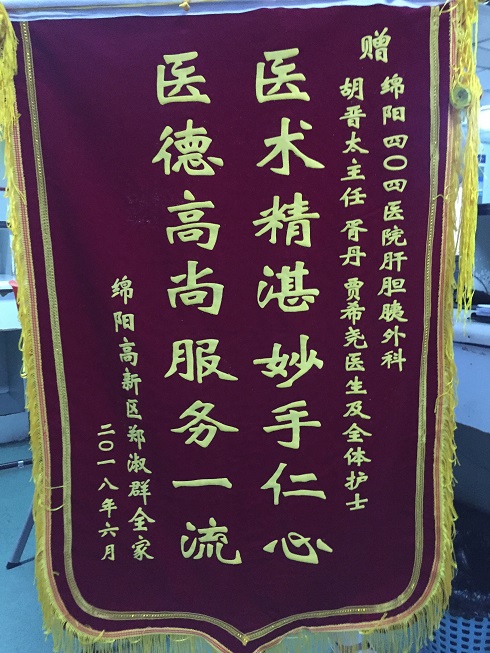 赠
绵阳四〇四医院肝胆胰外科
胡晋太主任 胥丹 贾希尧医生及全体护士
医术精湛妙手仁心
医德高尚服务一流
绵阳高新区郑淑群全家
二〇一八年六月